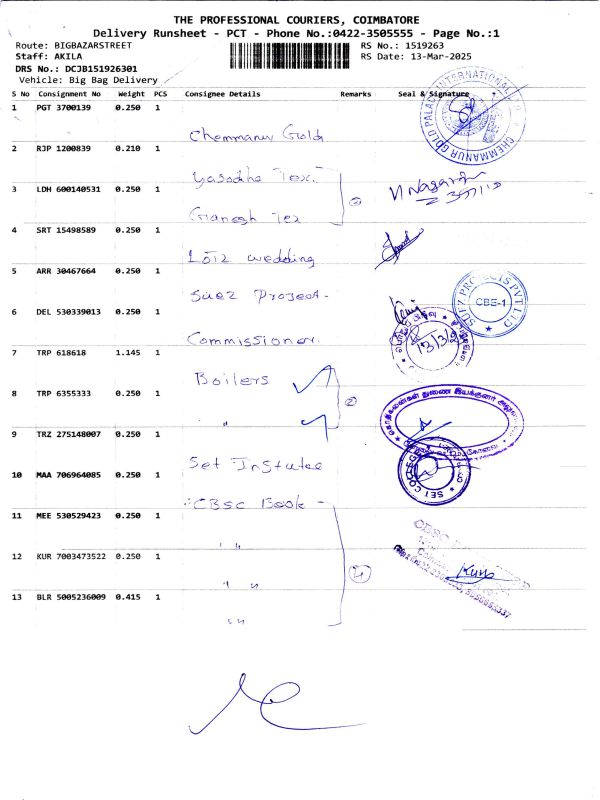 THE PROFESSIONAL COURIERS, COIMBATORE
Delivery Runsheet - PCT - Phone No.:0422-3505555 - Page No.:1
Route: BIGBAZARSTREET RS No.: 1519263
Staff: AKILA RS Date: 13-Mar-2025
DRS No.: DCJB151926301
Vehicle: Big Bag Delivery
S No Consignment No Weight PCS Consignee Details Remarks Seal & Signature
1 PGT 3700139 0.250 1
Chemmanur Gold
CHEMMANUR GOLD PALACE INTERNATIONAL
2 RJP 1200839 0.210 1
Yasodha Tex.
3 LDH 600140531 0.250 1
Ganesh Tex
4 SRT 15498589 0.250 1
Lotz wedding
5 ARR 30467664 0.250 1
Suez Project-
SUEZ PROJECTS PVT LTD
CBE-1
6 DEL 530339013 0.250 1
Commissioner.
13/3/2
7 TRP 618618 1.145 1
Boilers
8 TRP 6355333 0.250 1
"
9 TRZ 275148007 0.250 1
Set Institutee
SEI COLLEGE
10 MAA 706964085 0.250 1
CBSC Book -
11 MEE 530529423 0.250 1
" "
CBSC
12 KUR 7003473522 0.250 1
" "
13 BLR 5005236009 0.415 1
" "